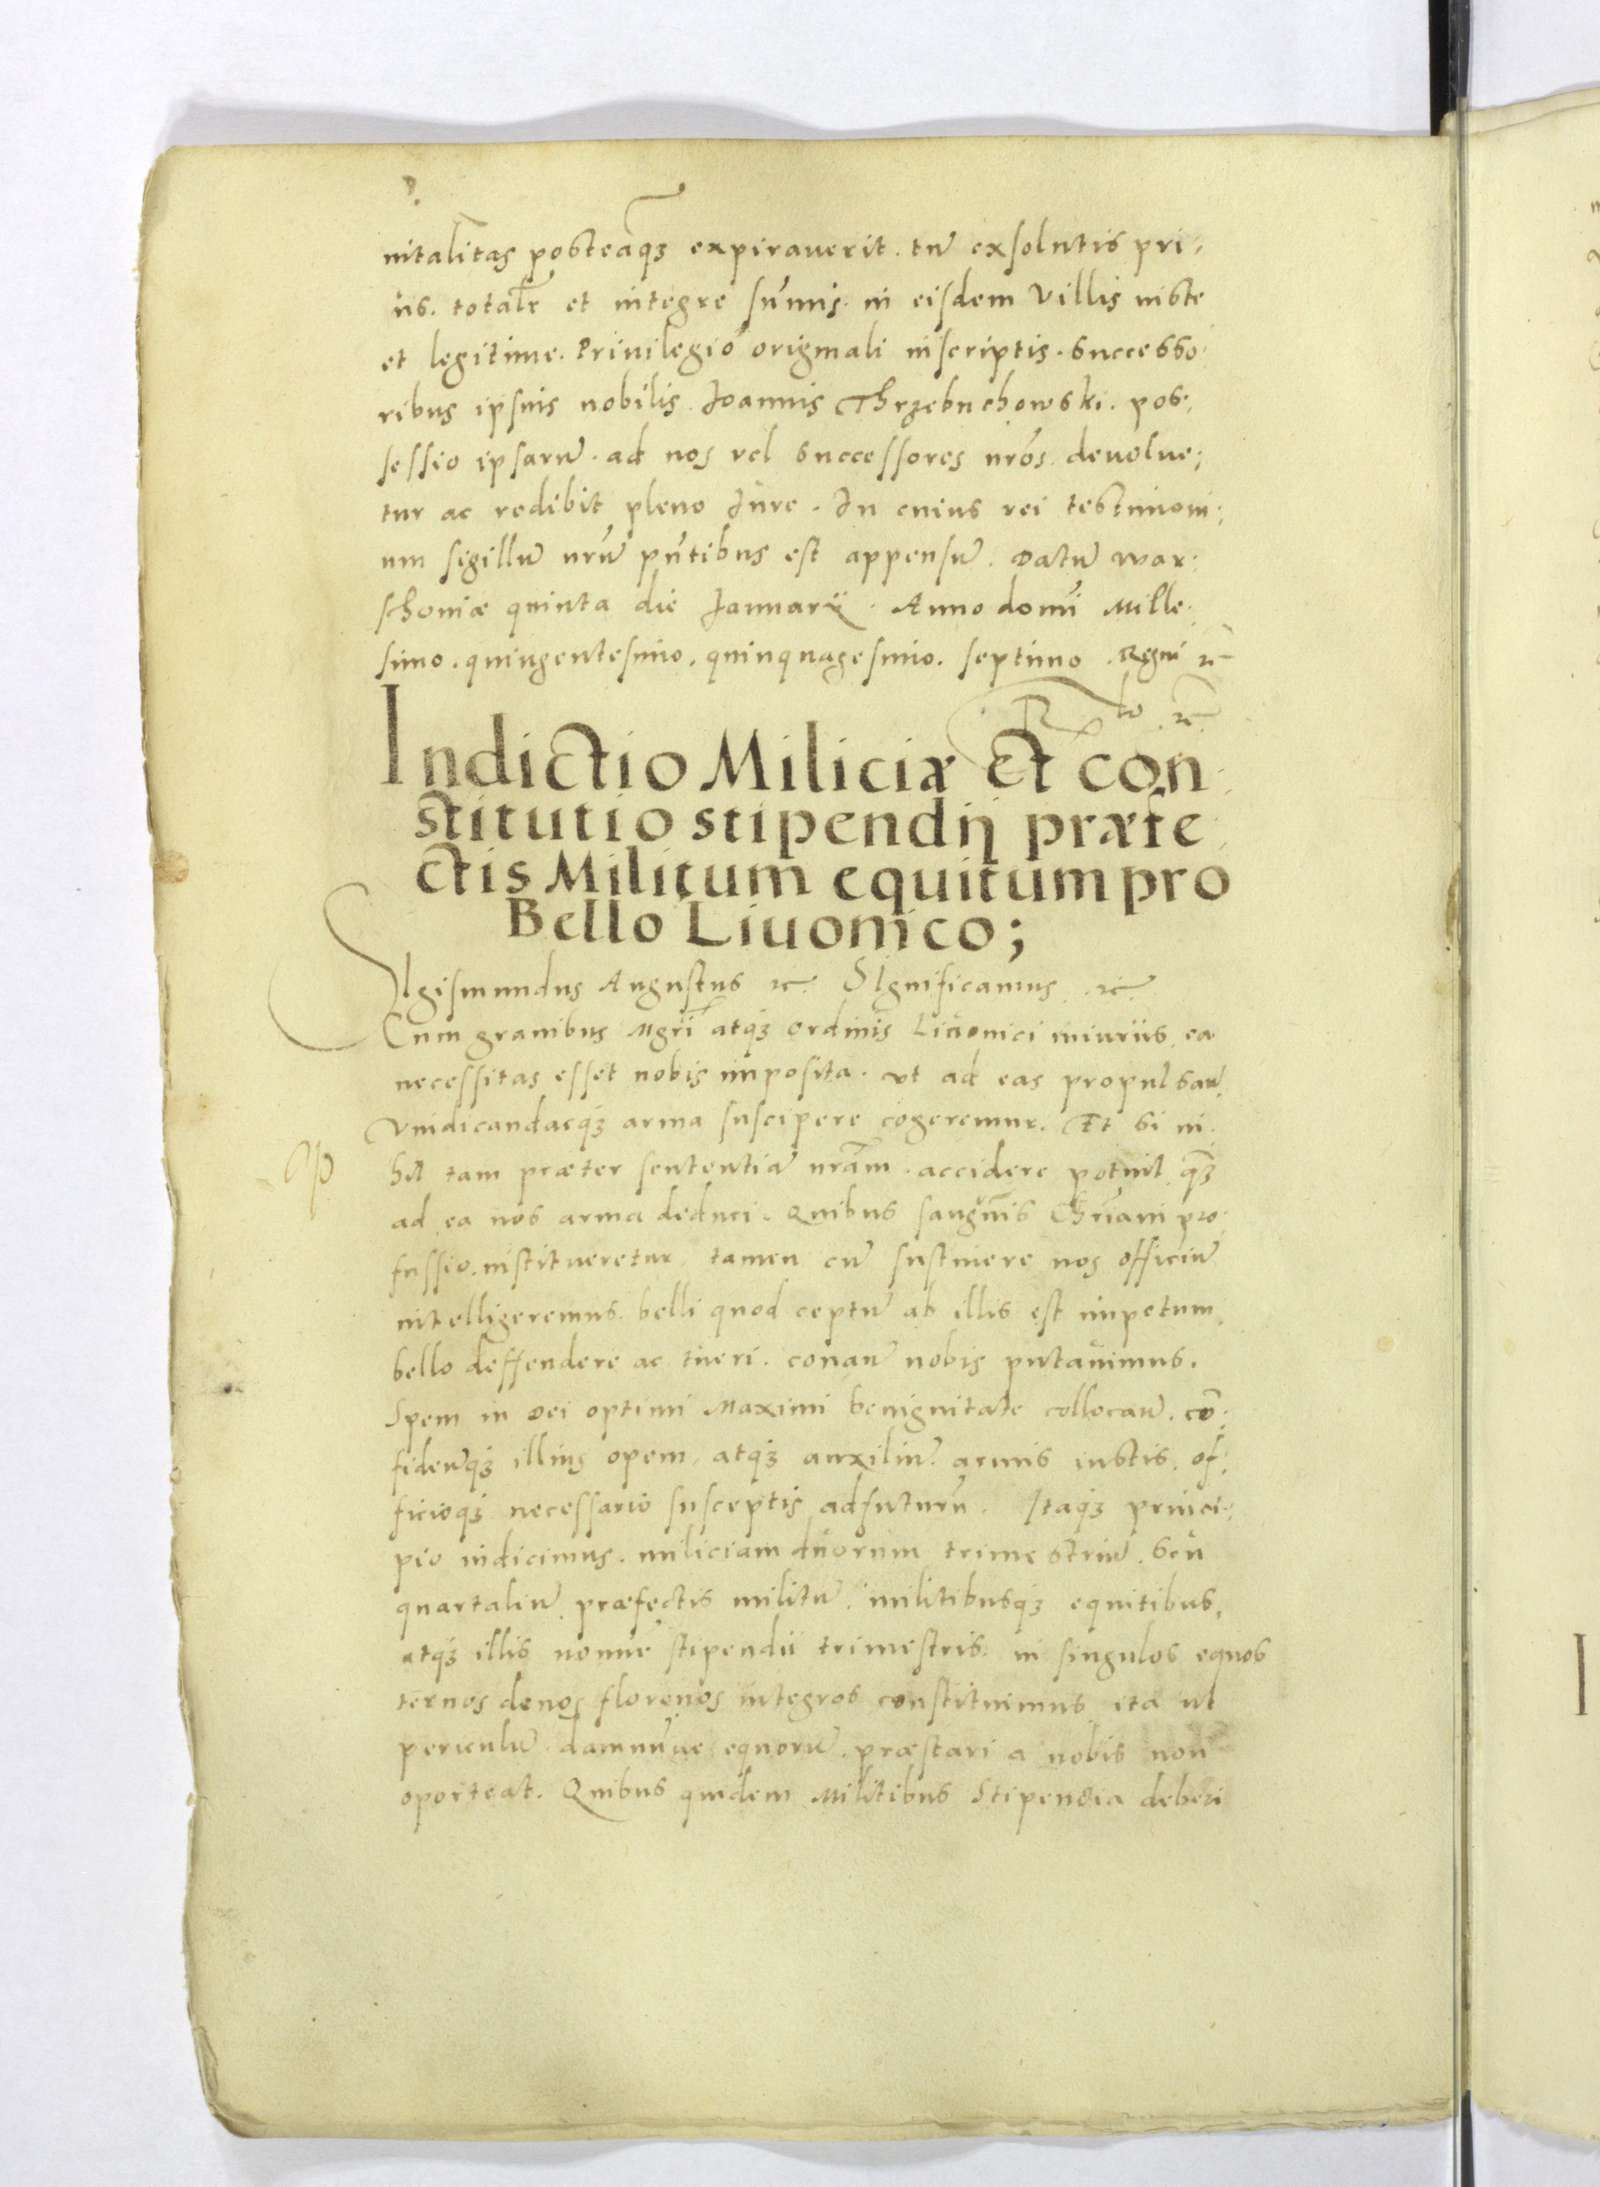 nitalitas posteaq̃ȝ expirauerit. tũ exsolutis pri:
us. totalr̃ et integre sum̃is in eisdem Villis iuste
et legitime. Priuilegio originali inscriptis. successo:
ribus ipsius nobilis Joannis Thrzebuchowski. pos:
sessio ipsarũ. ad nos vel successores nr̃os deuolue:
tur ac redibit pleno Jure. In cuius rei testimoni:
um sigillũ nr̃ũ pñtibus est appensũ. Datũ War:
schoviæ quinta die Januarii. Anno domĩ Mille:
simo. quingentesimo. quinquagesimo. septimo. Regni ꝛc̃
Indictio Miliciæ Et con:
stitutio stipendij præfe:
ctis Militum equitum pro
Bello Liuonico;
SIgismundus Augustus ꝛc. SIgnificamus ꝛc.
Cum grauibus Mgrĩ atqȝ ordinis Liuonici iniuriis ea
necessitas esset nobis imposita. vt ad eas propulsañ.
vindicandasqȝ arma suscipere cogeremur. Et si ni:
hil tam præter sententiã nr̃am. accidere potuit q̃ȝ
ad ea nos arma deduci. Quibus sanguinis Chr̃iani pro:
fussio. institueretur tamen cũ sustinere nos officiũ
intelligeremus. belli quod ceptũ ab illis est impetum
bello deffendere ac tueri. conañ nobis putauimus.
Spem in Dei optimi Maximi benignitate collocañ. cõ:
fideñqȝ illius opem, atqȝ auxiliũ armis iustis. of:
ficioqȝ necessario susceptis adfuturũ. Itaqȝ princi:
pio indicimus. miliciam duorum trimestriũ. seu
quartaliũ præfectis militũ. militibusqȝ equitibus,
atqȝ illis nomĩe stipendii trimestris in singulos equos
ternos denos florenos integros constituimus ita ut
periculũ damnũue equorũ. præstari a nobis non
oporteat. Quibus quidem Militibus Stipendia deberi